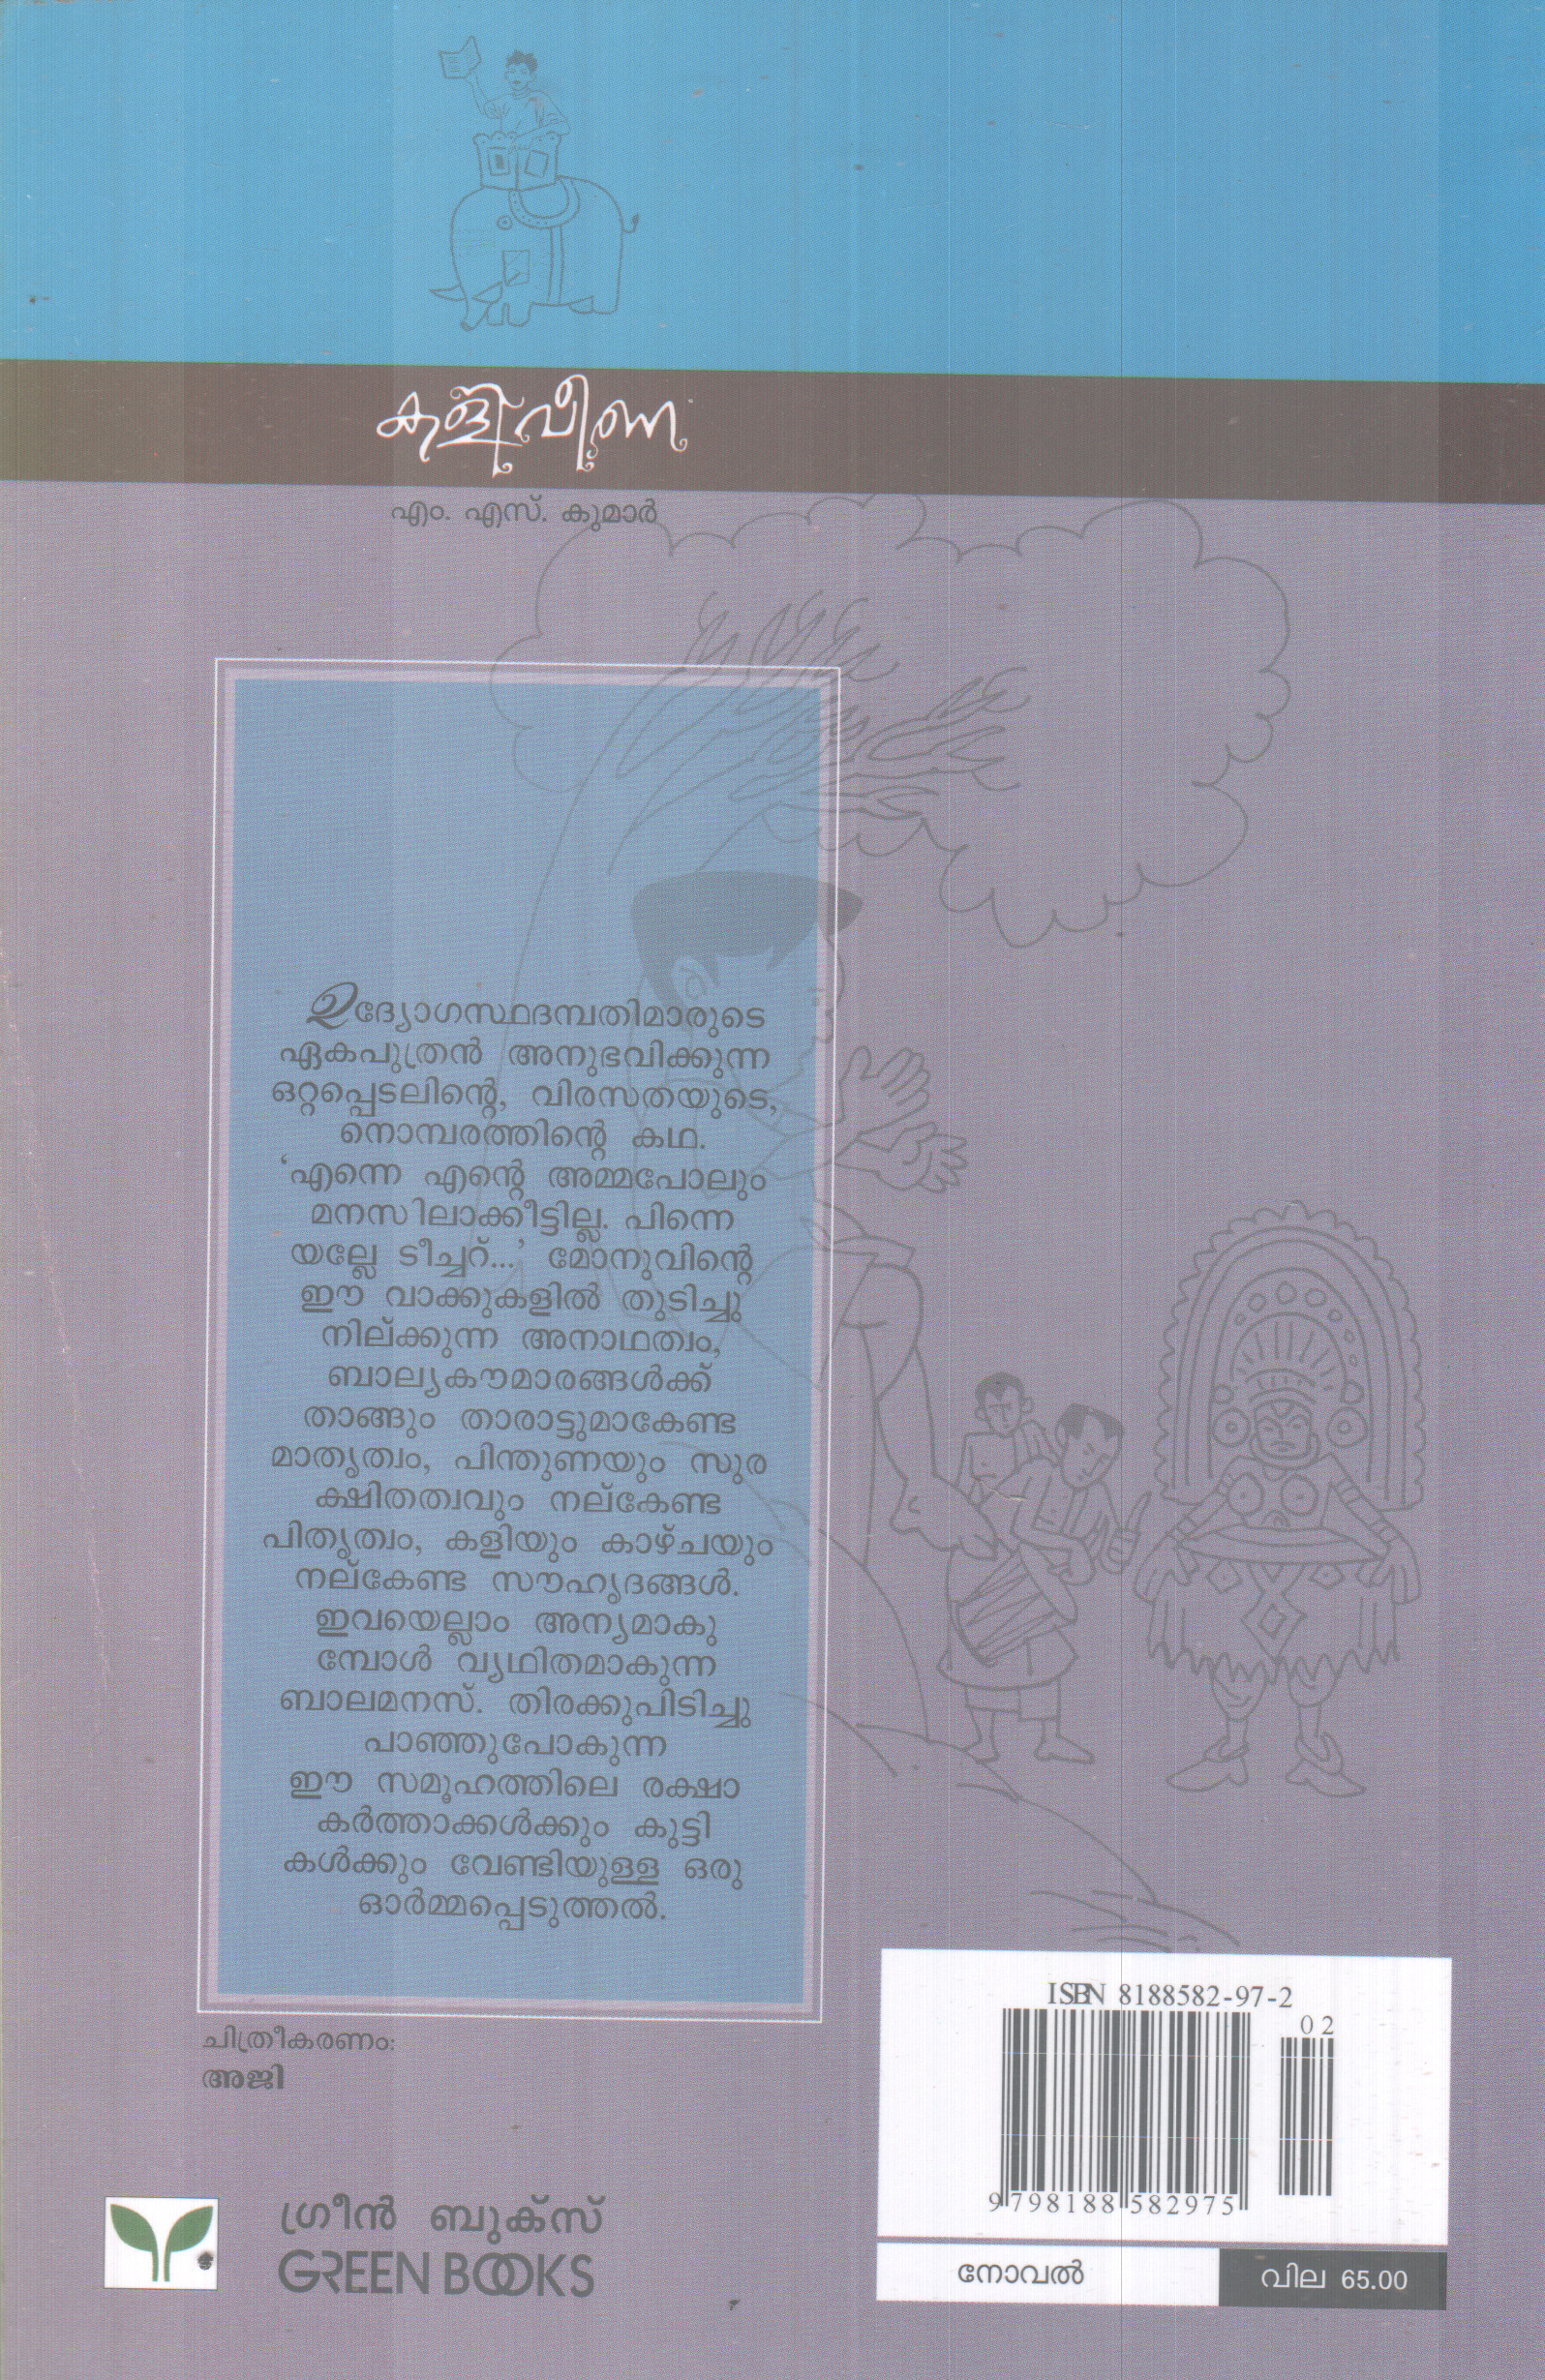 കളിവീണ
എം. എസ്. കുമാർ
ഉദ്യോഗസ്ഥദമ്പതിമാരുടെ
ഏകപുത്രൻ അനുഭവിക്കുന്ന
ഒറ്റപ്പെടലിന്റെ, വിരസതയുടെ,
നൊമ്പരത്തിന്റെ കഥ.
‘എന്നെ എന്റെ അമ്മപോലും
മനസിലാക്കീട്ടില്ല. പിന്നെ
യല്ലേ ടീച്ചറ്...’ മോനുവിന്റെ
ഈ വാക്കുകളിൽ തുടിച്ചു
നില്ക്കുന്ന അനാഥത്വം,
ബാല്യകൗമാരങ്ങൾക്ക്
താങ്ങും താരാട്ടുമാകേണ്ട
മാതൃത്വം, പിന്തുണയും സുര
ക്ഷിതത്വവും നല്കേണ്ട
പിതൃത്വം, കളിയും കാഴ്ചയും
നല്കേണ്ട സൗഹൃദങ്ങൾ.
ഇവയെല്ലാം അന്യമാകു
മ്പോൾ വ്യഥിതമാകുന്ന
ബാലമനസ്. തിരക്കുപിടിച്ചു
പാഞ്ഞുപോകുന്ന
ഈ സമൂഹത്തിലെ രക്ഷാ
കർത്താക്കൾക്കും കുട്ടി
കൾക്കും വേണ്ടിയുള്ള ഒരു
ഓർമ്മപ്പെടുത്തൽ.
ചിത്രീകരണം:
അജി
ഗ്രീൻ ബുക്സ്
GREEN BOOKS
ISBN 8188582-97-2
02
9 798188 582975
നോവൽ
വില 65.00